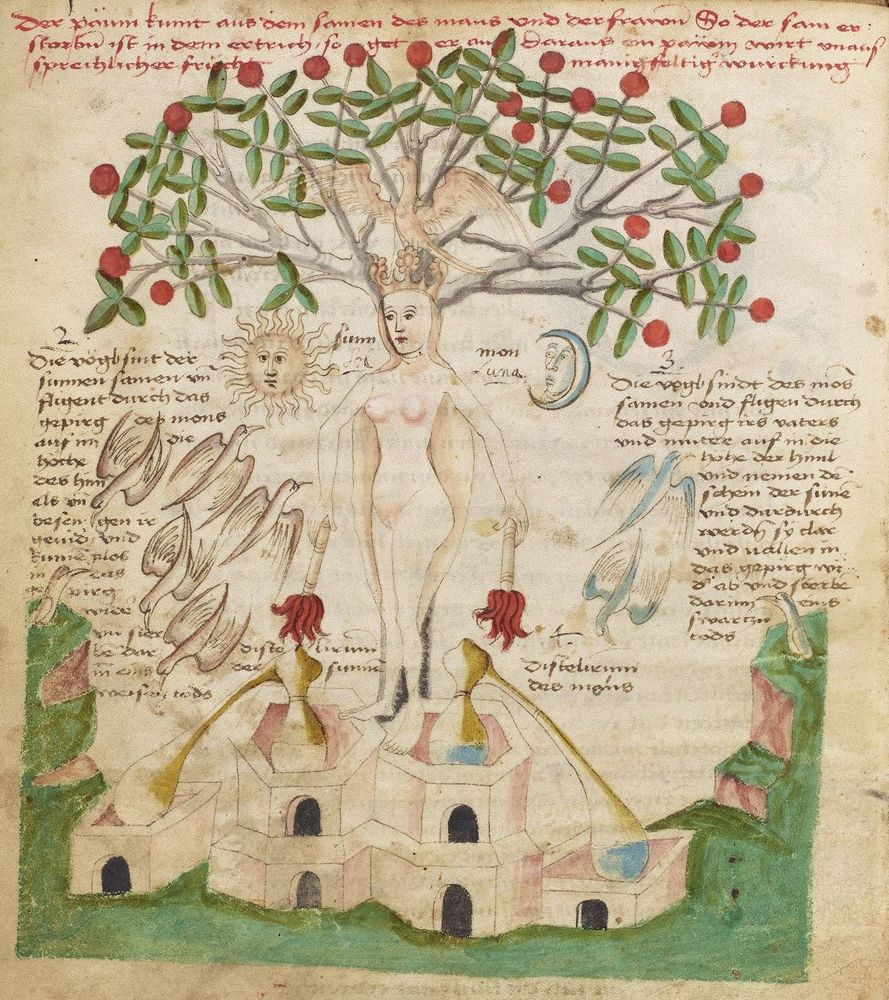 Der paüm kumt aus dem samen des mans und der frawen So der sam er
storbn ist in dem ertrich so get er auf Daraus ein paüm wirt unaus
sprechlicher frücht manigfeltig würckung
2
Die vögl sint der
sunnen samen vn
flugent durch das
gepirg des mons
auf in die
höche
des him
els vn
gen ir
und
plos
in das
pirg
wide
vn ster
be dar
in eins
weisen tods
sunn
Sol
mon
Luna
3
Die vögl sindt des mons
samen und flügen durch
das gepirg irs vaters
und muter auf in die
höche der himl
und nemen de
schein der sunne
und dardurch
werden sy clar
und vallen in
das gepirg wi
d' ab und sterbe
darinn eins
swartzn
tods
distelirum
der sunne
4
Distelirum
des mons